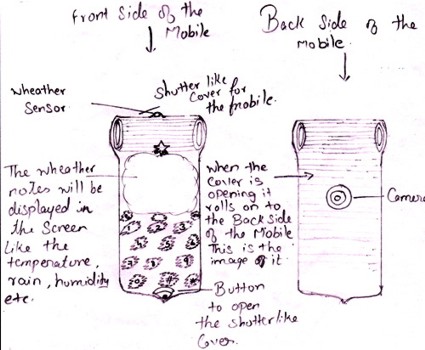 Front Side of the
Mobile
Back Side of the
Mobile.
Wheather
Sensor
Shutter like
Cover for
the mobile.
The Wheather
notes will be
displayed in
the Screen
Like the
temperature,
rain, humidity
etc.
When the
cover is
opening it
rolls on to
the Back side
of the Mobile
This is the
image of it.
Camera
Button
to open
the shutterlike
Cover.